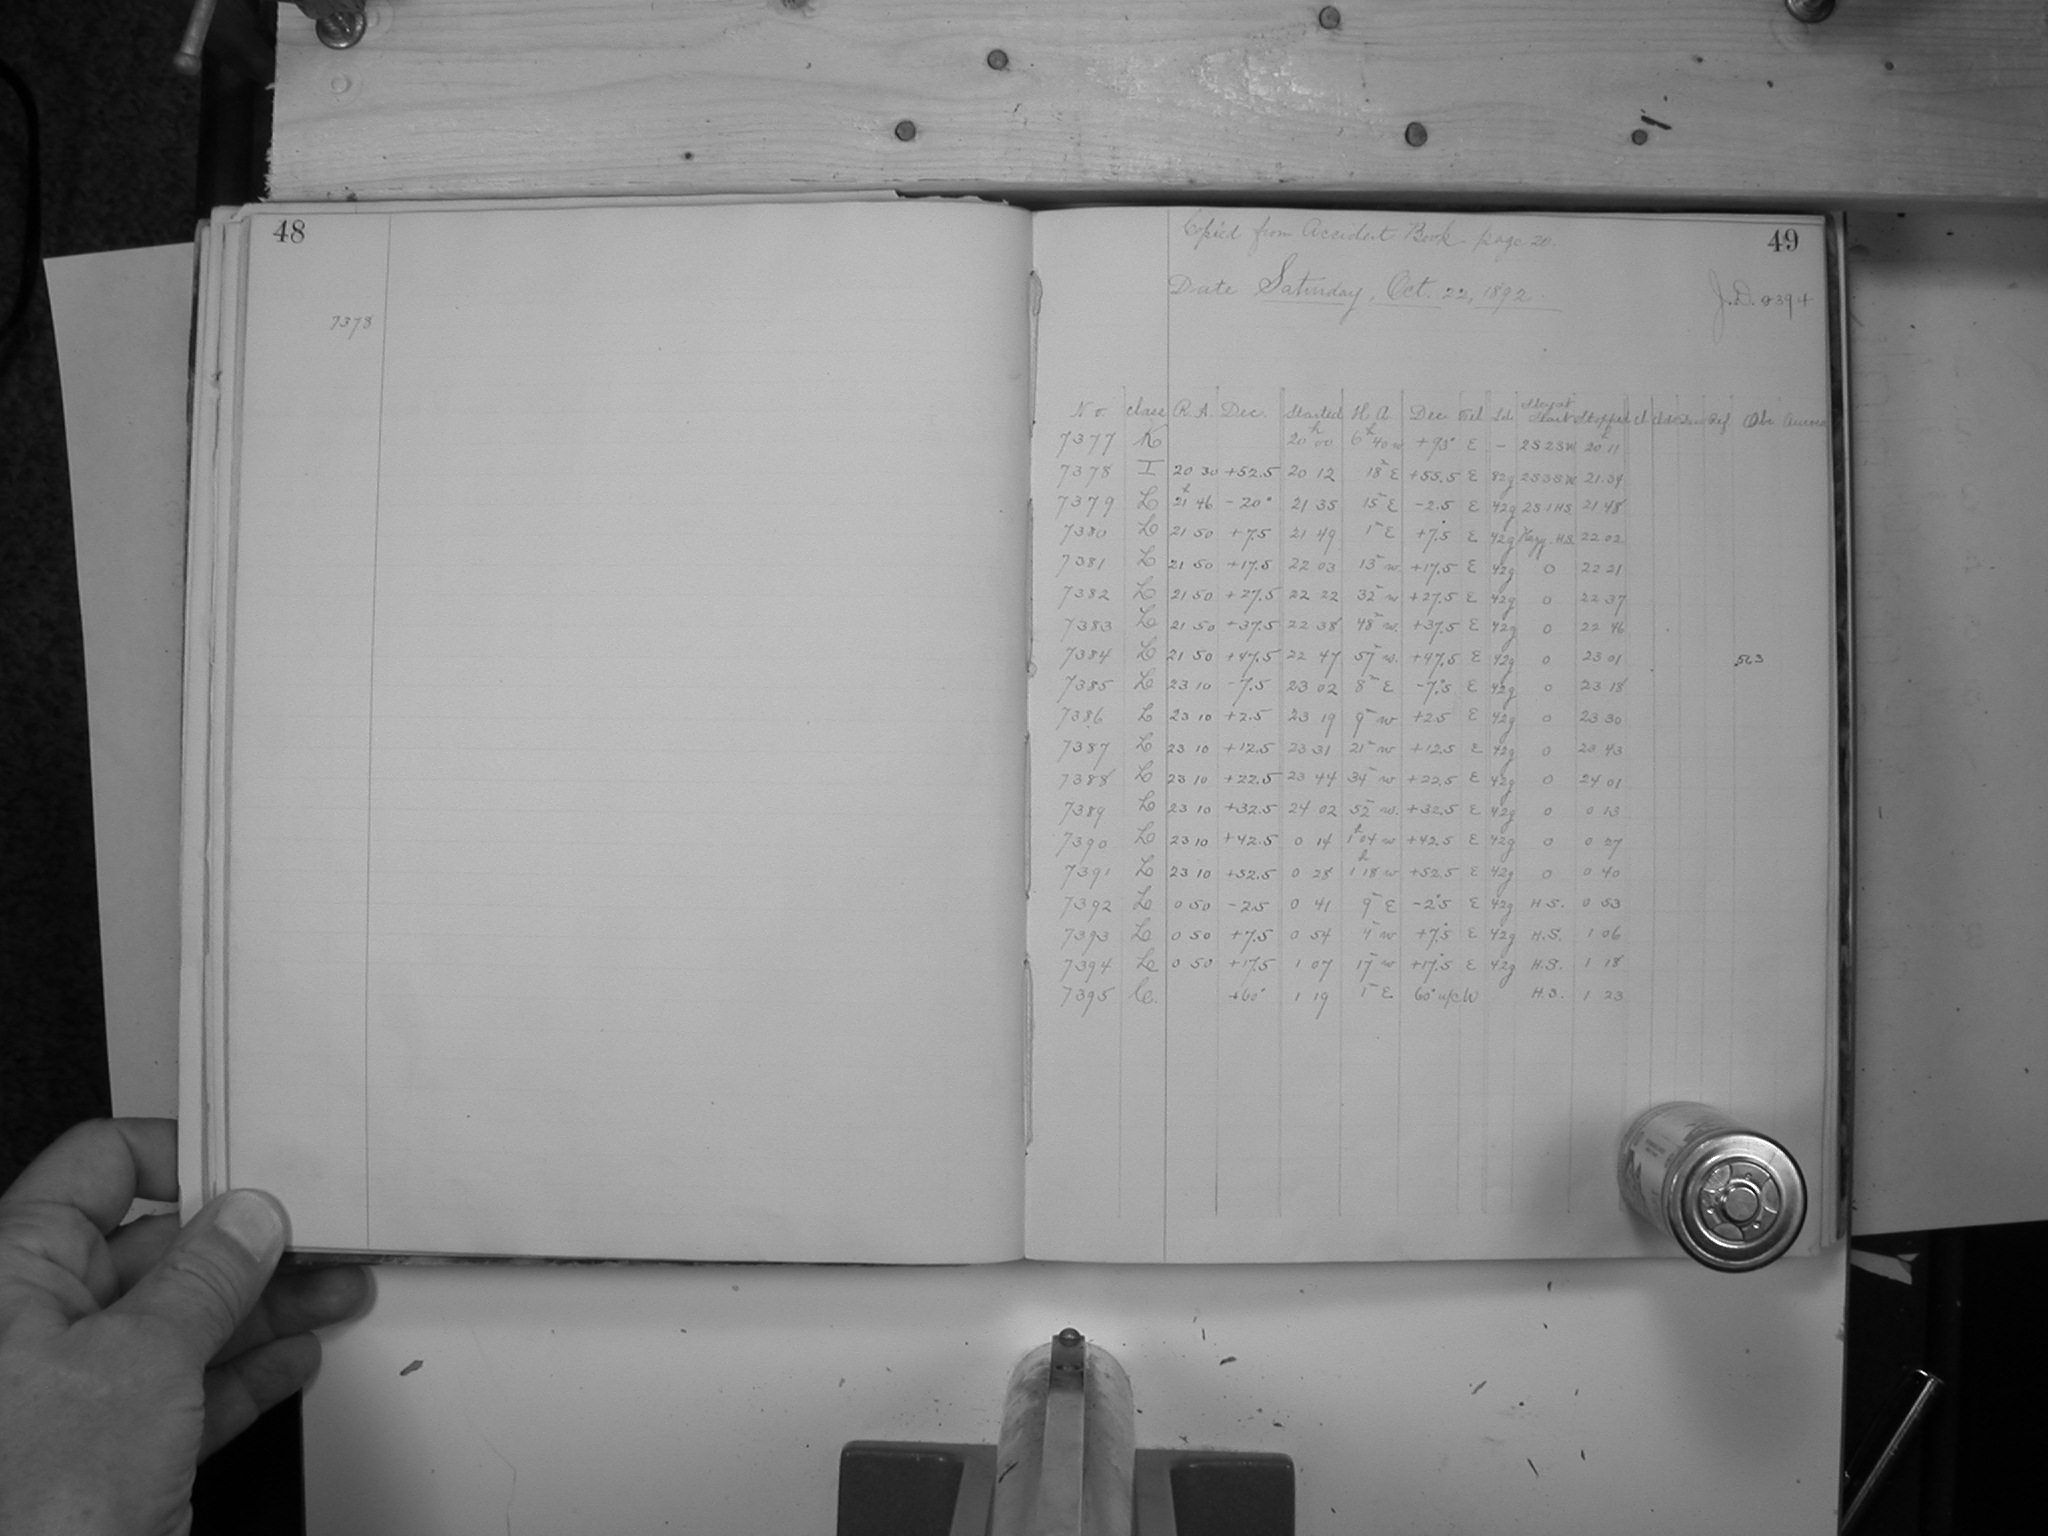 48
7378
49
Copied from Accident Book page 20.
Date Saturday, Oct. 22, 1892.
J.D. 2394
No. Class R.A. Dec. Started H A. Dec Tel Sd Stopped Cl Ref Obs
7377 K 20h 00 6h 40 w +93° E - 2S 2SW 20h 11
7378 I 20 30 +52.5 20 12 18m E +55.5 E 82g 2S3SW 21.34
7379 L 21h 46 -20° 21 35 15m E -2.5 E 42g 2S1HS 21 48
7380 L 21 50 +7.5 21 49 1m E +7.5 E 42g Hazy. H.S. 22 02
7381 L 21 50 +17.5 22 03 13m w +17.5 E 42g 0 22 21
7382 L 21 50 +27.5 22 22 32m w +27.5 E 42g 0 22 37
7383 L 21 50 +37.5 22 38 48m w. +37.5 E 42g 0 22 46
7384 L 21 50 +47.5 22 47 57m w. +47.5 E 42g 0 23 01 563
7385 L 23 10 -7.5 23 02 8m E -7.5 E 42g 0 23 18
7386 L 23 10 +2.5 23 19 9m w +2.5 E 42g 0 23 30
7387 L 23 10 +12.5 23 31 21m w +12.5 E 42g 0 23 43
7388 L 23 10 +22.5 23 44 34m w +22.5 E 42g 0 24 01
7389 L 23 10 +32.5 24 02 52m w. +32.5 E 42g 0 0 13
7390 L 23 10 +42.5 0 14 1h 04 w +42.5 E 42g 0 0 27
7391 L 23 10 +52.5 0 28 1h 18 w +52.5 E 42g 0 0 40
7392 L 0 50 -2.5 0 41 9m E -2.5 E 42g H.S. 0 53
7393 L 0 50 +7.5 0 54 4m w +7.5 E 42g H.S. 1 06
7394 L 0 50 +17.5 1 07 17m w +17.5 E 42g H.S. 1 18
7395 C. +60° 1 19 1m E 60° u/c W H.S. 1 23